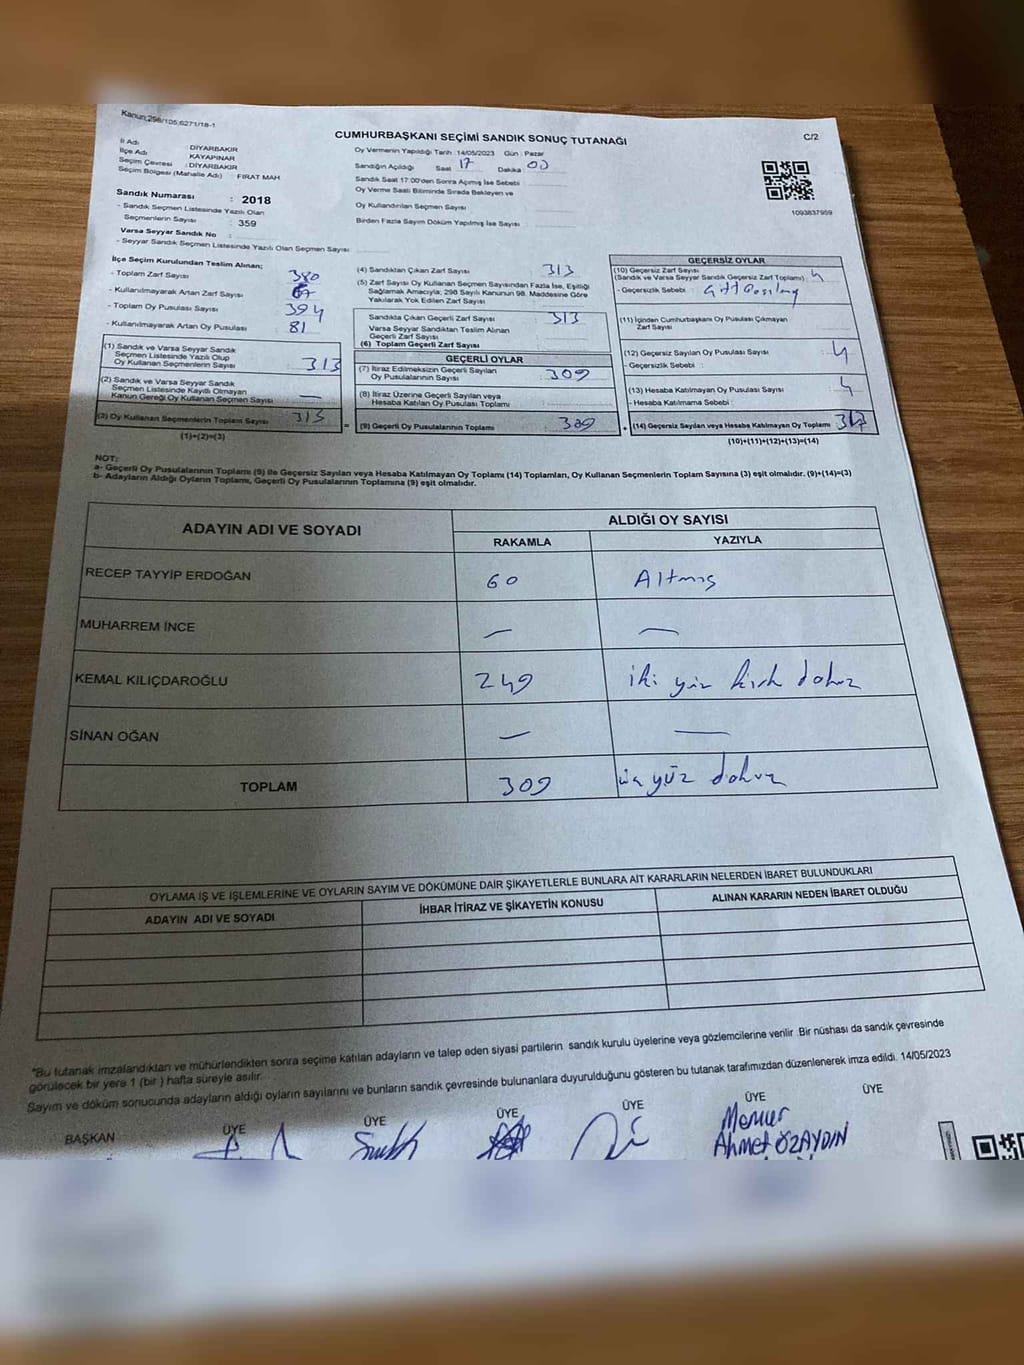 Kanun;298/105;6271/18-1
CUMHURBAŞKANI SEÇİMİ SANDIK SONUÇ TUTANAĞI
C/2
İl Adı : DİYARBAKIR
İlçe Adı : KAYAPINAR
Seçim Çevresi : DİYARBAKIR
Seçim Bölgesi (Mahalle Adı) : FIRAT MAH
Oy Vermenin Yapıldığı Tarih :14/05/2023 Gün : Pazar
Sandığın Açıldığı Saat 17 Dakika 00
Sandık Saat 17:00'den Sonra Açmış İse Sebebi
Oy Verme Saati Bitiminde Sırada Bekleyen ve
Oy Kullandırılan Seçmen Sayısı
Birden Fazla Sayım Döküm Yapılmış İse Sayısı
1093837959
Sandık Numarası : 2018
- Sandık Seçmen Listesinde Yazılı Olan
Seçmenlerin Sayısı : 359
Varsa Seyyar Sandık No :
- Seyyar Sandık Seçmen Listesinde Yazılı Olan Seçmen Sayısı
İlçe Seçim Kurulundan Teslim Alınan;
- Toplam Zarf Sayısı 380
- Kullanılmayarak Artan Zarf Sayısı 67
- Toplam Oy Pusulası Sayısı 394
- Kullanılmayarak Artan Oy Pusulası 81
(1) Sandık ve Varsa Seyyar Sandık
Seçmen Listesinde Yazılı Olup
Oy Kullanan Seçmenlerin Sayısı 313
(2) Sandık ve Varsa Seyyar Sandık
Seçmen Listesinde Kayıtlı Olmayan
Kanun Gereği Oy Kullanan Seçmen Sayısı —
(3) Oy Kullanan Seçmenlerin Toplam Sayısı 313
(1)+(2)=(3)
(4) Sandıktan Çıkan Zarf Sayısı 313
(5) Zarf Sayısı Oy Kullanan Seçmen Sayısından Fazla İse, Eşitliği
Sağlamak Amacıyla; 298 Sayılı Kanunun 98. Maddesine Göre
Yakılarak Yok Edilen Zarf Sayısı
Sandıkta Çıkan Geçerli Zarf Sayısı 313
Varsa Seyyar Sandıktan Teslim Alınan
Geçerli Zarf Sayısı
(6) Toplam Geçerli Zarf Sayısı
GEÇERLİ OYLAR
(7) İtiraz Edilmeksizin Geçerli Sayılan
Oy Pusulalarının Sayısı 309
(8) İtiraz Üzerine Geçerli Sayılan veya
Hesaba Katılan Oy Pusulası Toplamı
(9) Geçerli Oy Pusulalarının Toplamı 309
GEÇERSİZ OYLAR
(10) Geçersiz Zarf Sayısı
(Sandık ve Varsa Seyyar Sandık Geçersiz Zarf Toplamı) 4
- Geçersizlik Sebebi :
(11) İçinden Cumhurbaşkanı Oy Pusulası Çıkmayan
Zarf Sayısı
(12) Geçersiz Sayılan Oy Pusulası Sayısı 4
- Geçersizlik Sebebi :
(13) Hesaba Katılmayan Oy Pusulası Sayısı 4
- Hesaba Katılmama Sebebi
(14) Geçersiz Sayılan veya Hesaba Katılmayan Oy Toplamı
(10)+(11)+(12)+(13)=(14)
NOT:
a- Geçerli Oy Pusulalarının Toplamı (9) ile Geçersiz Sayılan veya Hesaba Katılmayan Oy Toplamı (14) Toplamları, Oy Kullanan Seçmenlerin Toplam Sayısına (3) eşit olmalıdır. (9)+(14)=(3)
b- Adayların Aldığı Oyların Toplamı, Geçerli Oy Pusulalarının Toplamına (9) eşit olmalıdır.
ADAYIN ADI VE SOYADI
ALDIĞI OY SAYISI
RAKAMLA YAZIYLA
RECEP TAYYİP ERDOĞAN 60 Altmış
MUHARREM İNCE — —
KEMAL KILIÇDAROĞLU 249 iki yüz kırk dokuz
SİNAN OĞAN — —
TOPLAM 309 üç yüz dokuz
OYLAMA İŞ VE İŞLEMLERİNE VE OYLARIN SAYIM VE DÖKÜMÜNE DAİR ŞİKAYETLERLE BUNLARA AİT KARARLARIN NELERDEN İBARET BULUNDUKLARI
ADAYIN ADI VE SOYADI İHBAR İTİRAZ VE ŞİKAYETİN KONUSU ALINAN KARARIN NEDEN İBARET OLDUĞU
"Bu tutanak imzalandıktan ve mühürlendikten sonra seçime katılan adayların ve talep eden siyasi partilerin sandık kurulu üyelerine veya gözlemcilerine verilir. Bir nüshası da sandık çevresinde
görülecek bir yere 1 (bir ) hafta süreyle asılır.
Sayım ve döküm sonucunda adayların aldığı oyların sayılarını ve bunların sandık çevresinde bulunanlara duyurulduğunu gösteren bu tutanak tarafımızdan düzenlenerek imza edildi. 14/05/2023
BAŞKAN ÜYE ÜYE ÜYE ÜYE ÜYE ÜYE
Memur
Ahmet ÖZAYDIN